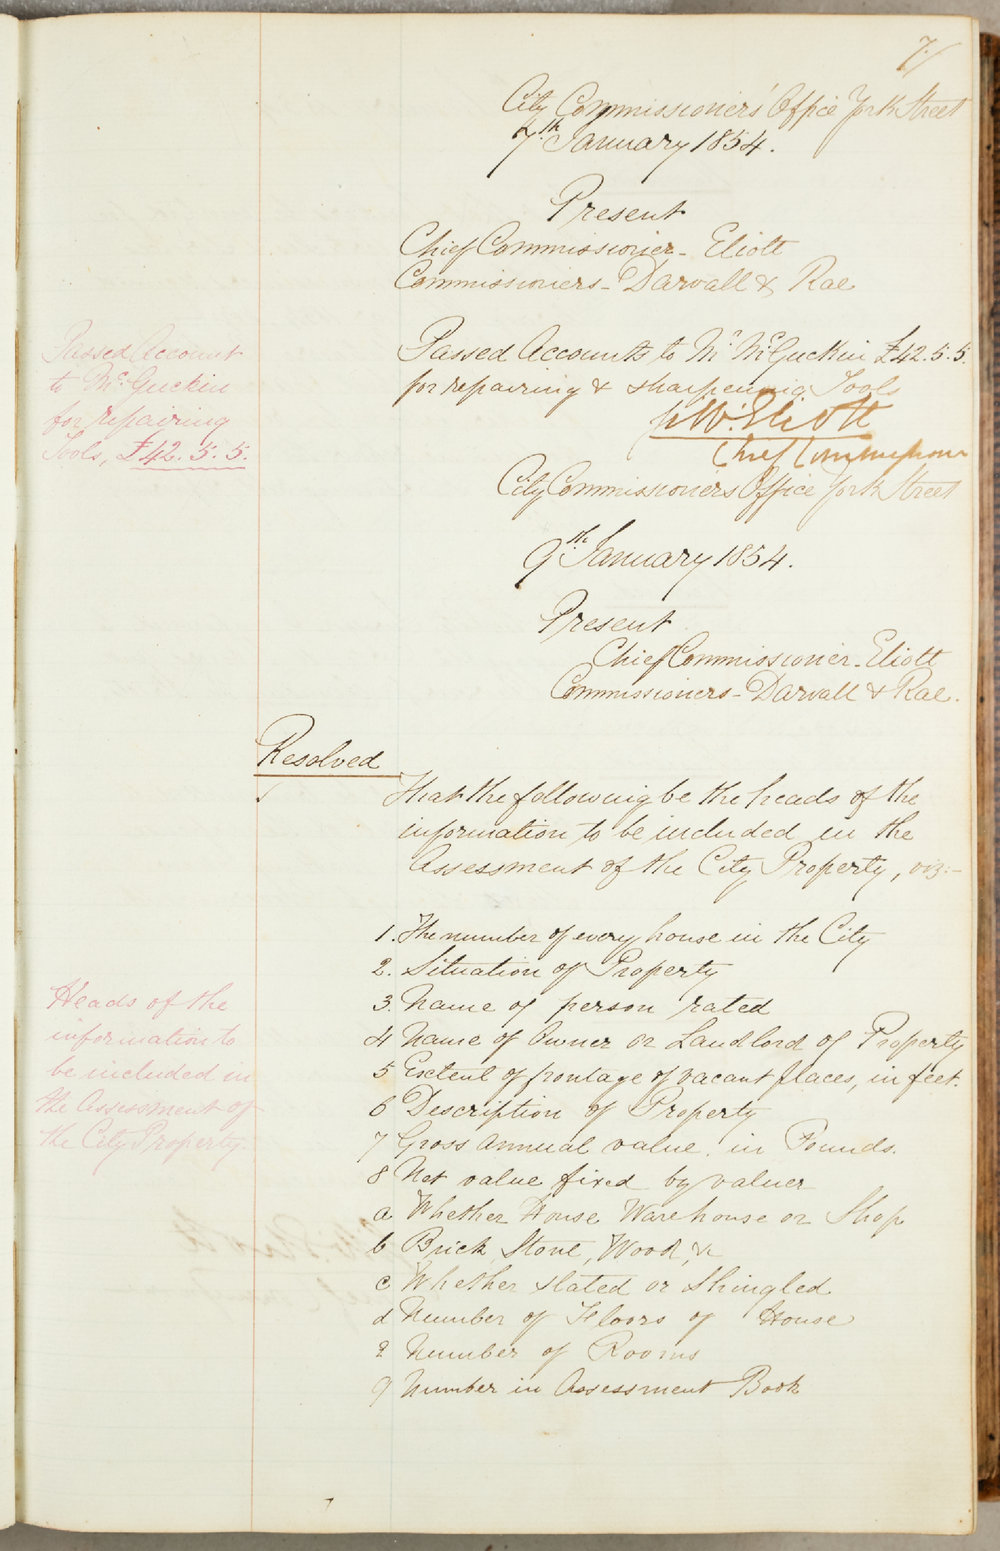 7/
City Commissioners' Office York Street
7th January 1854.
Present
Chief Commissioner - Eliott
Commissioners - Darvall & Rae
Passed Account
to Mc. Guckin
for repairing
Tools, £42. 5. 5.
Passed Accounts to Mr. McGuckin £42. 5. 5.
for repairing & sharpening Tools
W. Eliott
Chief Commissioner
City Commissioners Office York Street
9th January 1854.
Present
Chief Commissioner - Eliott
Commissioners - Darvall & Rae.
Resolved
That the following be the heads of the
information to be included in the
Assessment of the City Property, viz:-
Heads of the
information to
be included in
the Assessment of
the City Property.
1. The number of every house in the City
2. Situation of Property
3. Name of person rated
4 Name of Owner or Landlord of Property
5 Extent of frontage of vacant places, in feet.
6 Description of Property
7 Gross annual value in Pounds.
8 Net value fixed by valuer
a Whether House Warehouse or Shop
b Brick, Stone, Wood, &c
c Whether slated or Shingled
d Number of Floors of House
e Number of Rooms
9 Number in Assessment Book